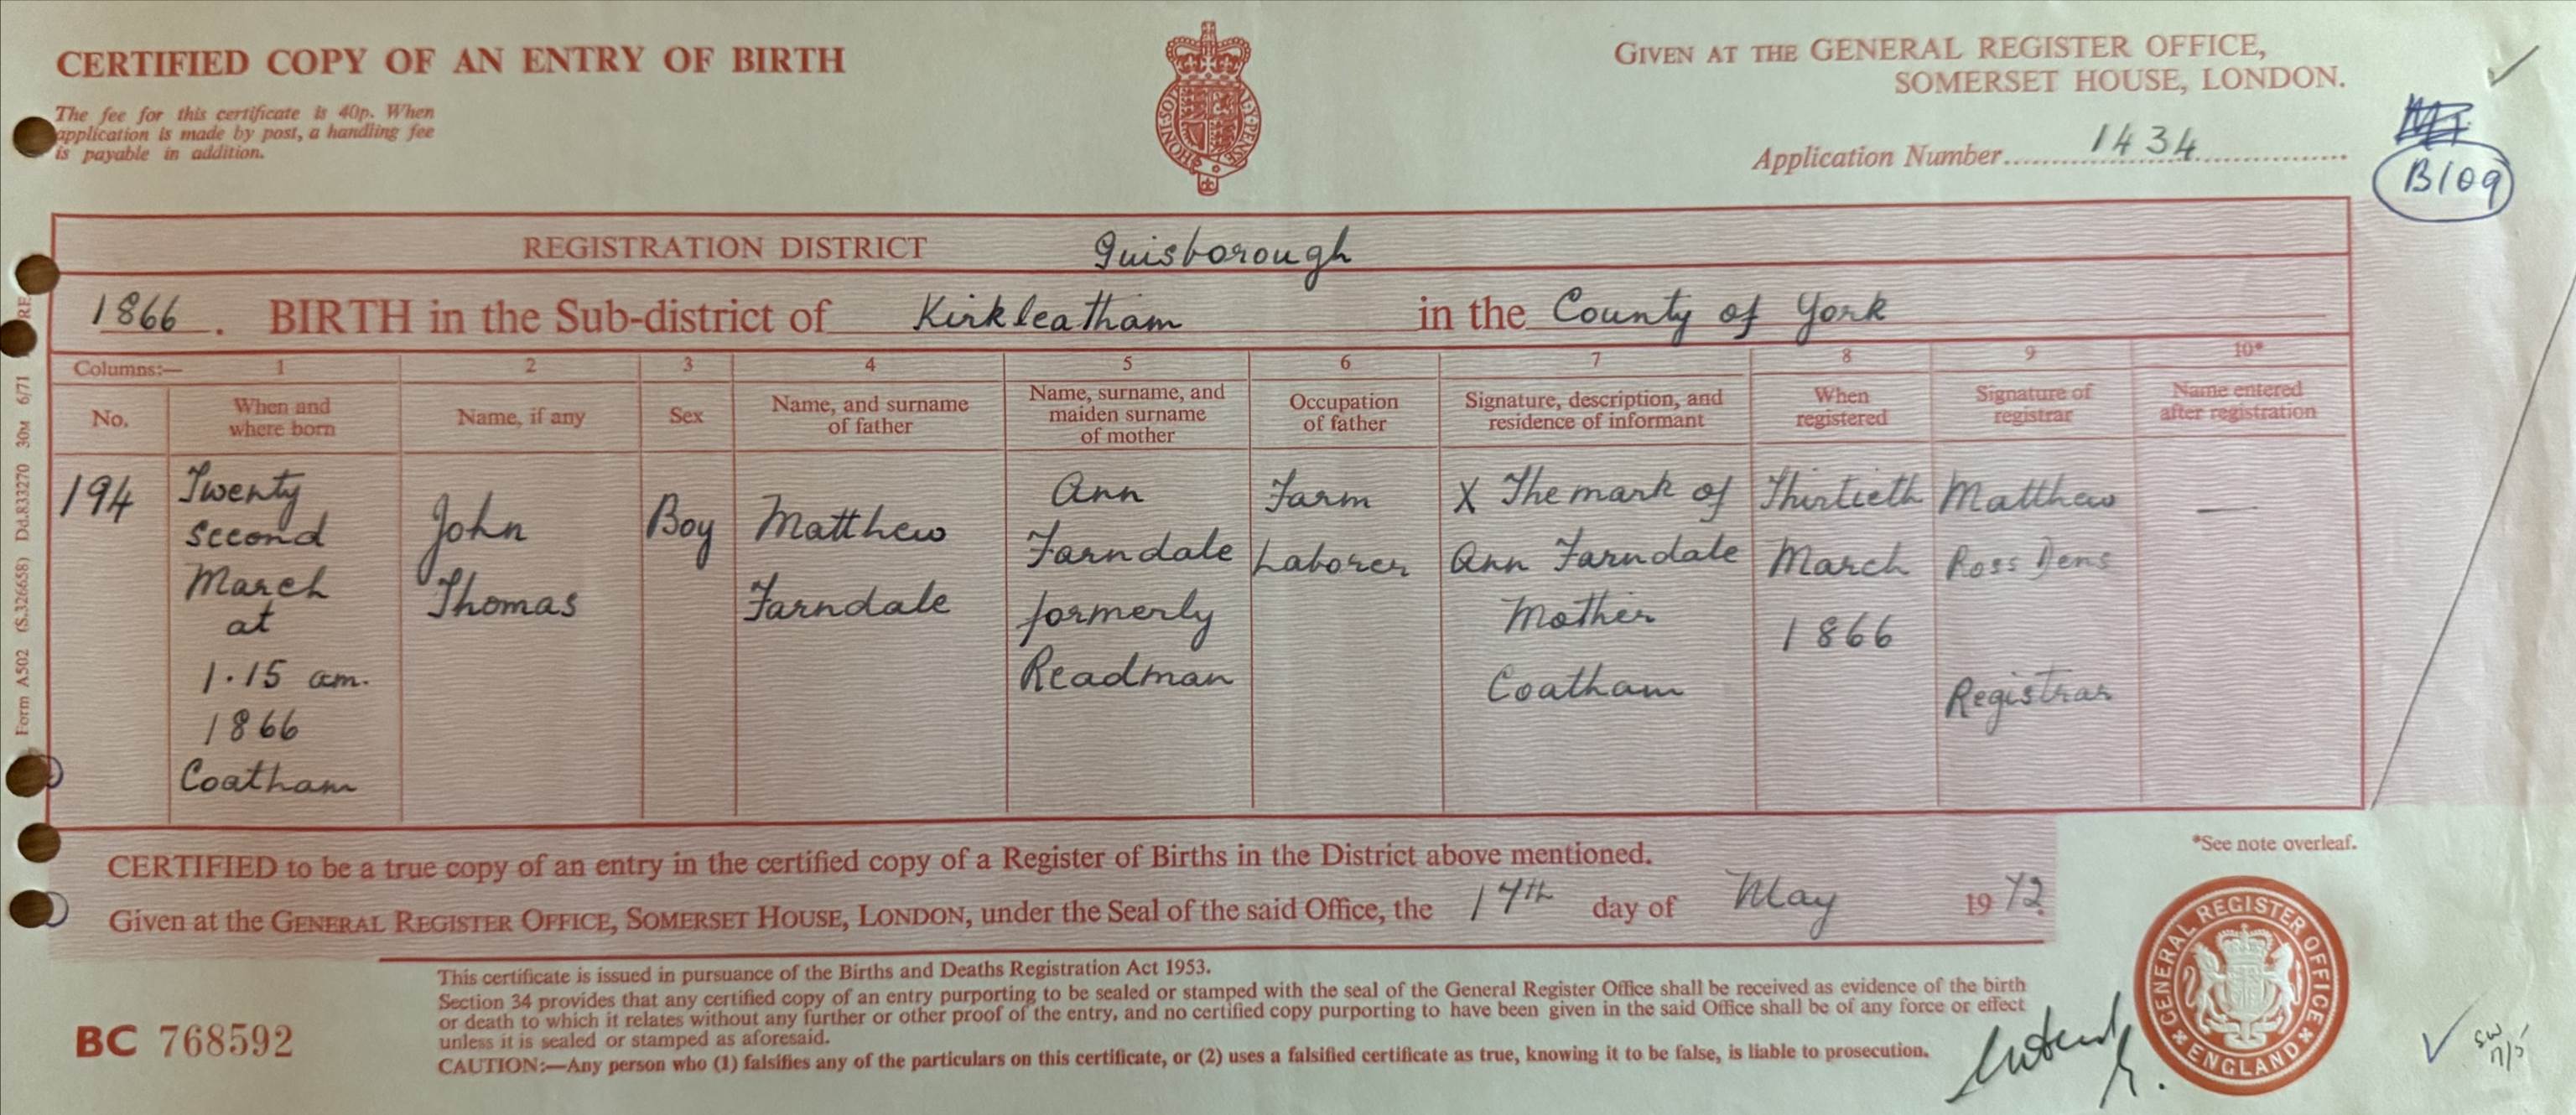 CERTIFIED COPY OF AN ENTRY OF BIRTH
The fee for this certificate is 40p. When
application is made by post, a handling fee
is payable in addition.
GIVEN AT THE GENERAL REGISTER OFFICE,
SOMERSET HOUSE, LONDON.
Application Number 1434
B109
REGISTRATION DISTRICT Guisborough
1866. BIRTH in the Sub-district of Kirkleatham in the County of York
Columns:— 1 2 3 4 5 6 7 8 9 10*
No.
When and
where born
Name, if any
Sex
Name, and surname
of father
Name, surname, and
maiden surname
of mother
Occupation
of father
Signature, description, and
residence of informant
When
registered
Signature of
registrar
Name entered
after registration
194
Twenty
second
March
at
1.15 am.
1866
Coatham
John
Thomas
Boy
Matthew
Farndale
Ann
Farndale
formerly
Readman
Farm
Laborer
X The mark of
Ann Farndale
Mother
Coatham
Thirtieth
March
1866
Matthew
Ross Dens
Registrar
—
*See note overleaf.
CERTIFIED to be a true copy of an entry in the certified copy of a Register of Births in the District above mentioned.
Given at the GENERAL REGISTER OFFICE, SOMERSET HOUSE, LONDON, under the Seal of the said Office, the 17th day of May 1972.
This certificate is issued in pursuance of the Births and Deaths Registration Act 1953.
Section 34 provides that any certified copy of an entry purporting to be sealed or stamped with the seal of the General Register Office shall be received as evidence of the birth
or death to which it relates without any further or other proof of the entry, and no certified copy purporting to have been given in the said Office shall be of any force or effect
unless it is sealed or stamped as aforesaid.
CAUTION:—Any person who (1) falsifies any of the particulars on this certificate, or (2) uses a falsified certificate as true, knowing it to be false, is liable to prosecution.
BC 768592
GENERAL REGISTER OFFICE
ENGLAND
SW
17/5
Form A502 (S.326658) Dd.833270 30M 6/71